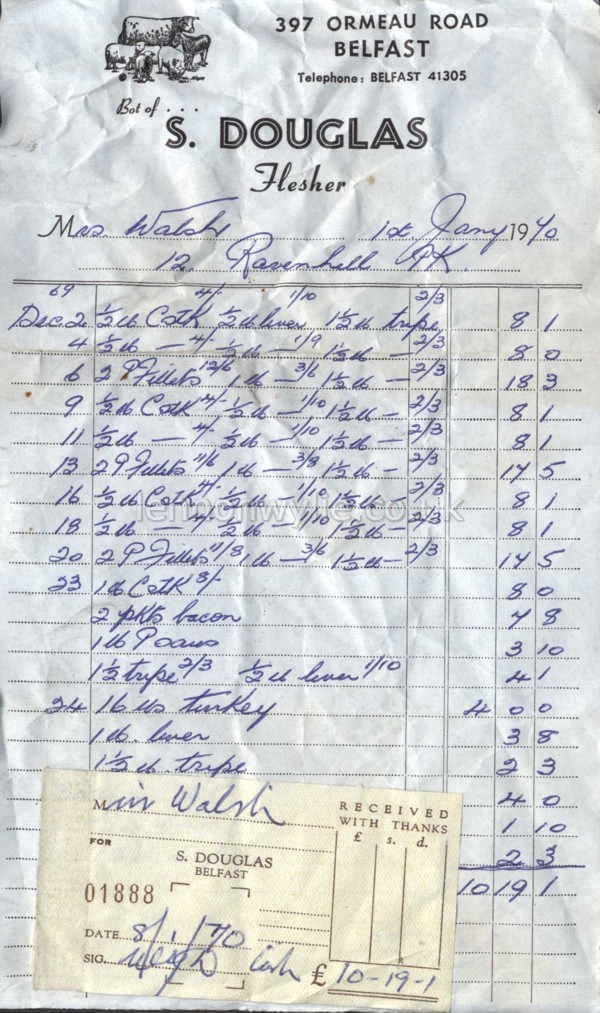 397 ORMEAU ROAD
BELFAST
Telephone: BELFAST 41305
Bot of . . .
S. DOUGLAS
Flesher
Mrs. Walsh 1st Jany 1970
12, Ravenhill PK.
69
4/- 1/10 2/3
Dec. 2 ½ lb Cstk ½ lb liver 1½ lb tripe 8 1
4 ½ lb — 4/- ½ lb — 1/9 1½ lb — 2/3 8 0
6 2 P Fillets 12/6 1 lb — 3/6 1½ lb — 2/3 18 3
9 ½ lb Cstk 4/- ½ lb — 1/10 1½ lb — 2/3 8 1
11 ½ lb — 4/- ½ lb — 1/10 1½ lb — 2/3 8 1
13 2 P Fillets 11/6 1 lb — 3/8 1½ lb — 2/3 17 5
16 ½ lb Cstk 4/- ½ lb — 1/10 1½ lb — 2/3 8 1
18 ½ lb — 4/- ½ lb — 1/10 1½ lb — 2/3 8 1
20 2 P Fillets 11/8 1 lb — 3/6 1½ lb — 2/3 17 5
23 1 lb Cstk 8/- 8 0
2 pkts bacon 7 8
1 lb P 3 10
1½ tripe 2/3 ½ lb liver 1/10 4 1
24 16 lbs turkey 4 0 0
1 lb liver 3 8
1½ lb tripe 2 3
4 0
1 10
2 3
10 19 1
Mrs Walsh
RECEIVED
WITH THANKS
£ s. d.
FOR
S. DOUGLAS
BELFAST
01888
DATE 8/1/70
SIG. Cash £ 10-19-1